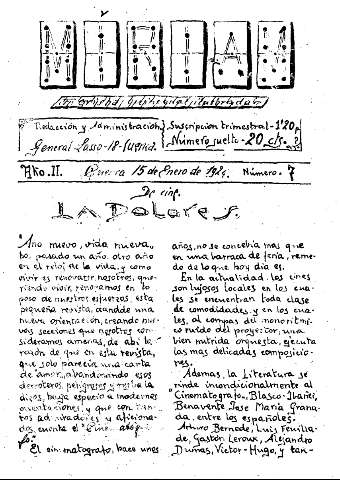 Redacción y Administración
Suscripción trimestral-1'20 p.
General Lasso-18-Cuenca.
Número suelto-20 cts.
Año.II. Cuenca 15 de Enero de 192 Número. 7
De cine.
La Dolores.
"Año nuevo, vida nueva"
ha pasado un año, otro año
en el reloj de la vida, y como
vivir es renovarse, nosotros, que-
riendo vivir, renovamos en lo
poso de nuestros esfuerzos, esta
pequeña revista, dandole una
nueva orientación, creando nue-
vas secciones que nosotros con-
sideramos amenas, de ahi la
razón de que en esta revista,
que solo parecia una carta
de amor, abandonando esos
derroteros, peligrosos y
de espacio a modernos
orientaciones, y que con tan-
tos admiradores y aficiona-
dos, cuenta el "Cine
fo".
El cinematografo, hace unos
años, no se concebia mas que
en una barraca de feria, reme-
do de lo que hoy dia es.
En la actualidad, los cines
son lujosos locales en los cua-
les se encuentran toda clase
de comodidades, y en los cua-
les, al compas del monoritmi-
co ruido del proyector, una
bien nutrida orquesta, ejecuta
las mas delicadas composicio-
nes.
Ademas, la Literatura se
rinde incondicionalmente al
"Cinematografo". Blasco-Ibañez,
Benavente, Jose Maria Grana-
da, entre los españoles.
Arturo Bernede, Luis Feuilla-
de, Gastón Leroux, Alejandro
Dumas, Victor-Hugo, y tan-